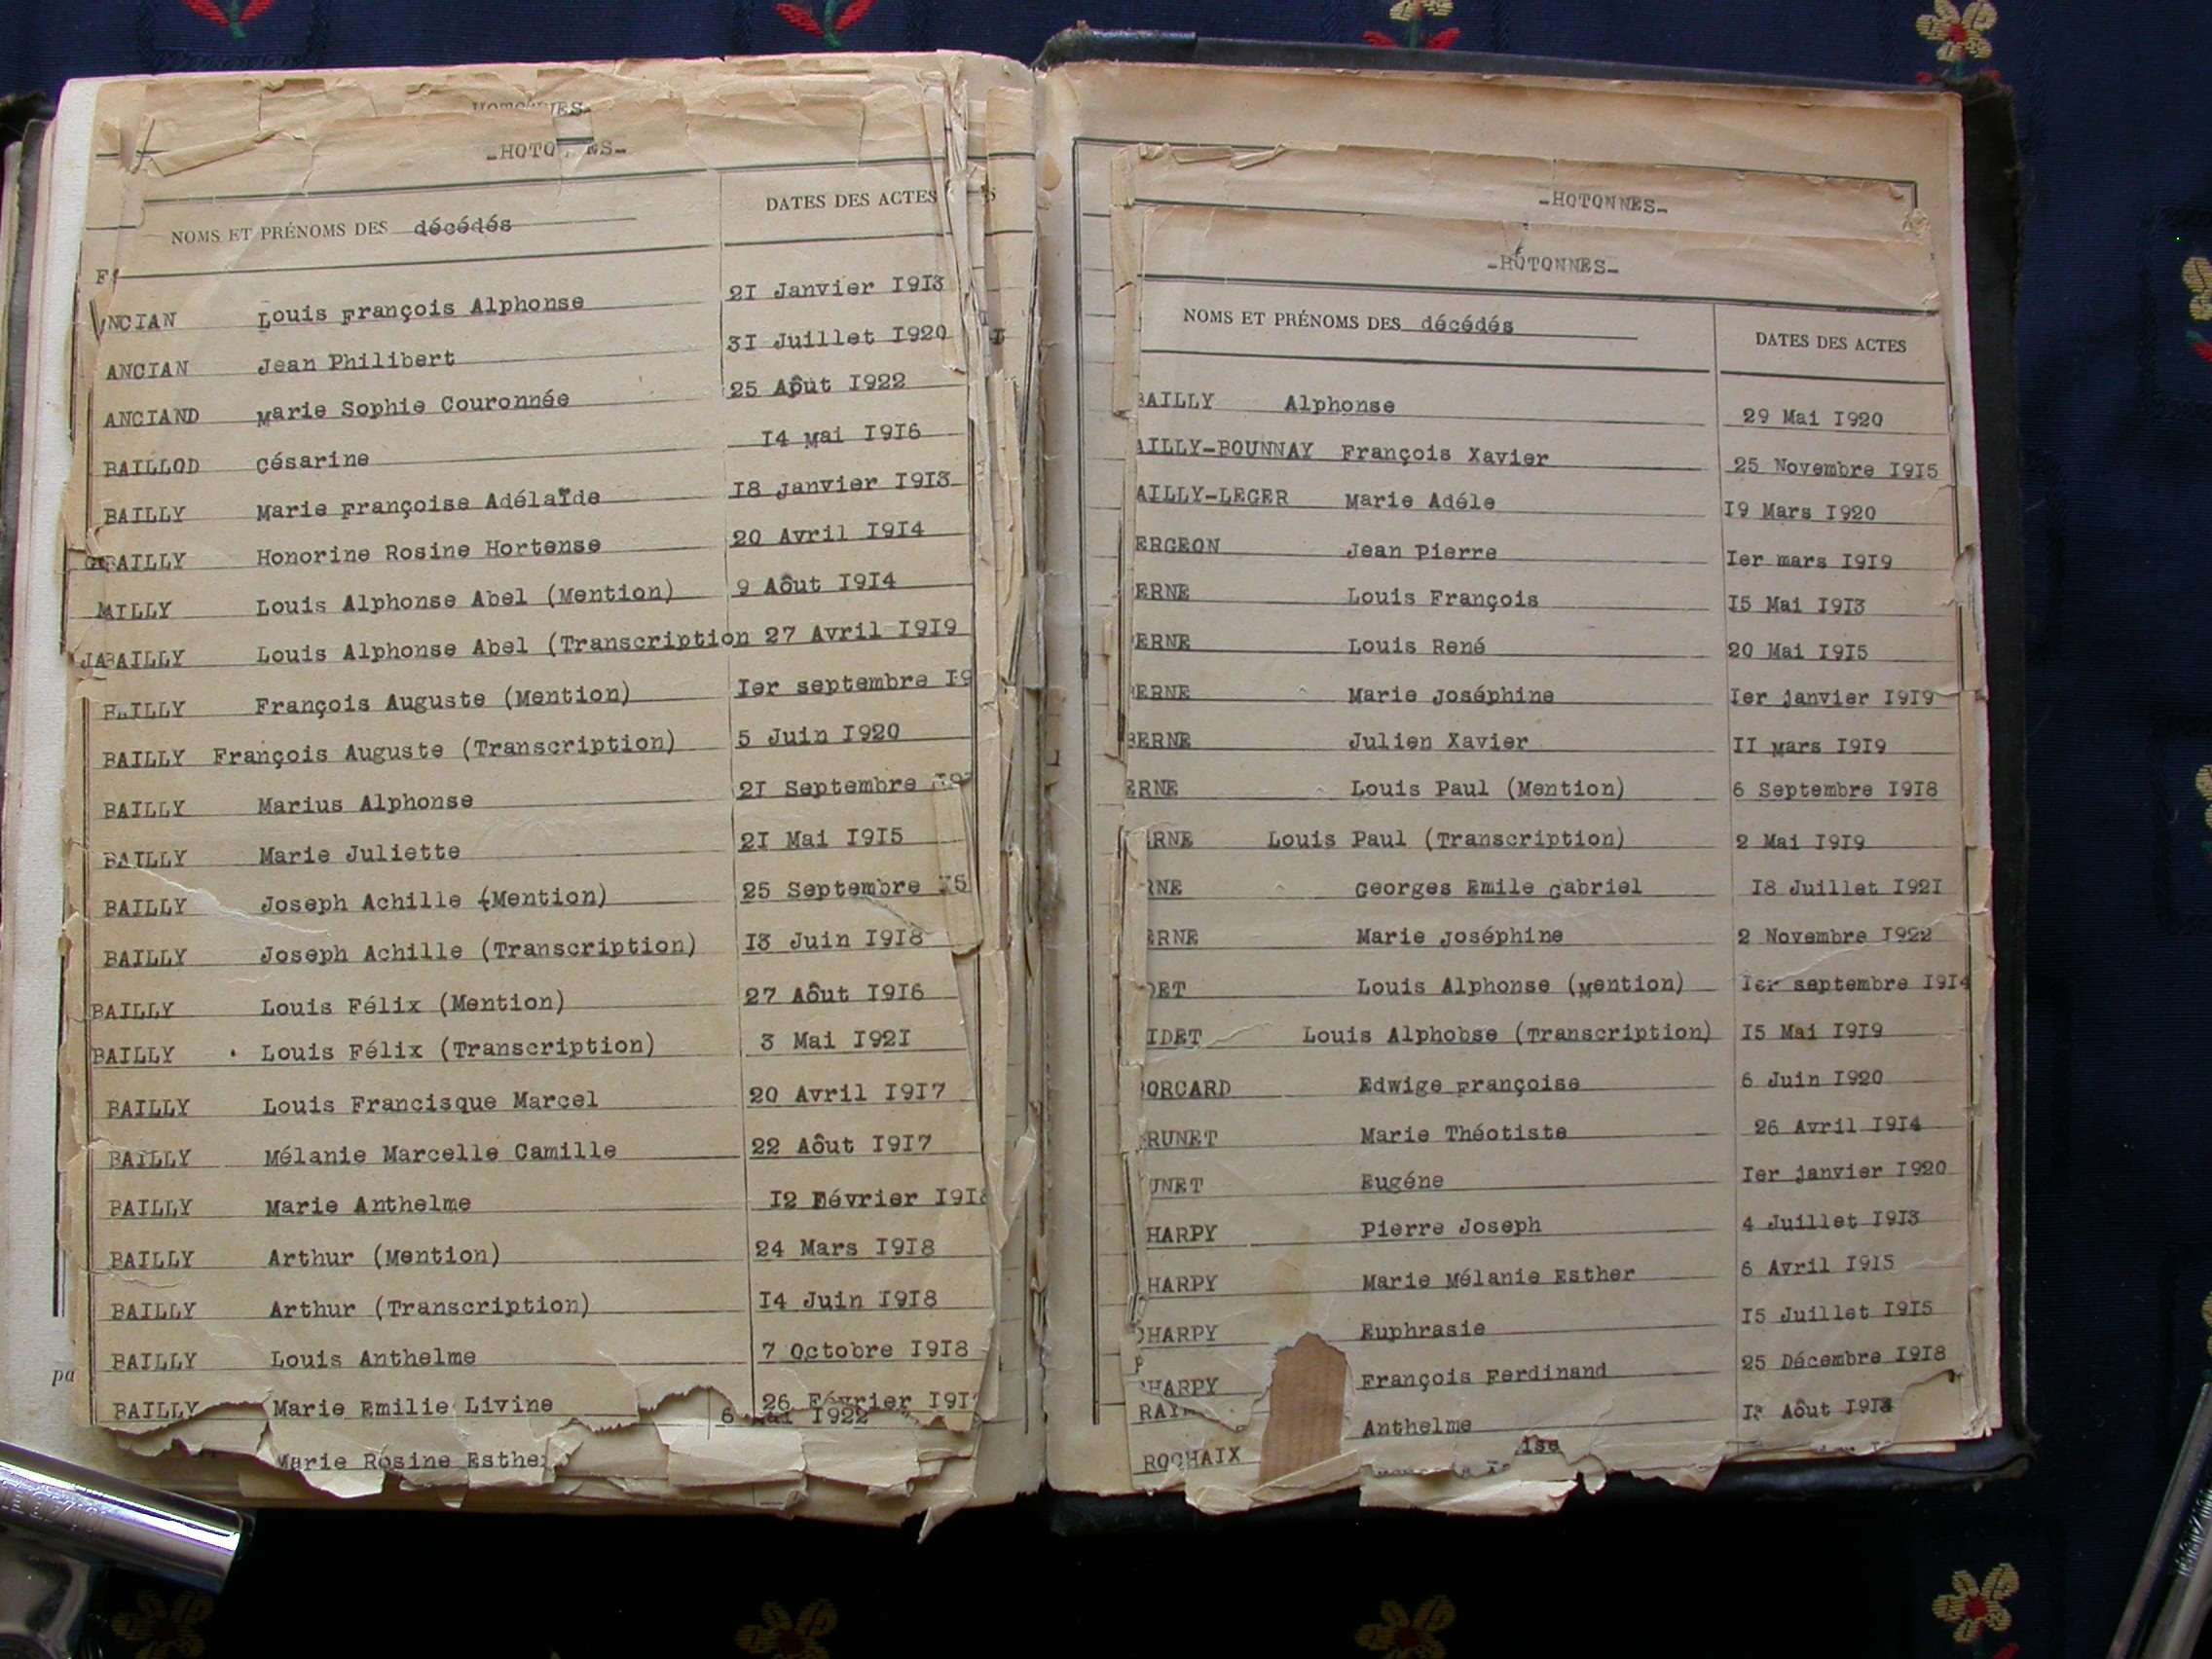 -HOTONNES-
NOMS ET PRÉNOMS DES décédés DATES DES ACTES
NCIAN Louis François Alphonse 21 Janvier 1913
ANCIAN Jean Philibert 31 Juillet 1920
ANCIAND Marie Sophie Couronnée 25 Aôut 1922
BAILLOD Césarine 14 Mai 1916
BAILLY Marie Françoise Adélaïde 18 Janvier 1913
BAILLY Honorine Rosine Hortense 20 Avril 1914
AILLY Louis Alphonse Abel (Mention) 9 Aôut 1914
BAILLY Louis Alphonse Abel (Transcription 27 Avril 1919
BAILLY François Auguste (Mention) Ier septembre
BAILLY François Auguste (Transcription) 5 Juin 1920
BAILLY Marius Alphonse 21 Septembre
BAILLY Marie Juliette 21 Mai 1915
BAILLY Joseph Achille (Mention) 25 Septembre
BAILLY Joseph Achille (Transcription) 13 Juin 1918
BAILLY Louis Félix (Mention) 27 Aôut 1916
BAILLY Louis Félix (Transcription) 3 Mai 1921
BAILLY Louis Francisque Marcel 20 Avril 1917
BAILLY Mélanie Marcelle Camille 22 Aôut 1917
BAILLY Marie Anthelme 12 Février 191
BAILLY Arthur (Mention) 24 Mars 1918
BAILLY Arthur (Transcription) 14 Juin 1918
BAILLY Louis Anthelme 7 Octobre 1918
BAILLY Marie Emilie Livine 26 Février 191
6 Mai 1922
Marie Rosine Esthe
-HOTONNES-
-HOTONNES-
NOMS ET PRÉNOMS DES décédés DATES DES ACTES
BAILLY Alphonse 29 Mai 1920
AILLY-BOUNNAY François Xavier 25 Novembre 1915
AILLY-LEGER Marie Adéle 19 Mars 1920
ERGEON Jean Pierre Ier mars 1919
ERNE Louis François 15 Mai 1913
ERNE Louis René 20 Mai 1915
ERNE Marie Joséphine Ier janvier 1919
BERNE Julien Xavier 11 Mars 1919
ERNE Louis Paul (Mention) 6 Septembre 1918
RNE Louis Paul (Transcription) 2 Mai 1919
RNE Georges Emile Gabriel 18 Juillet 1921
ERNE Marie Joséphine 2 Novembre 1922
DET Louis Alphonse (Mention) Ier septembre 1914
IDET Louis Alphobse (Transcription) 15 Mai 1919
ORCARD Edwige Françoise 6 Juin 1920
RUNET Marie Théotiste 26 Avril 1914
UNET Eugéne Ier janvier 1920
HARPY Pierre Joseph 4 Juillet 1913
HARPY Marie Mélanie Esther 6 Avril 1915
CHARPY Euphrasie 15 Juillet 1915
HARPY François Ferdinand 25 Décembre 1918
Anthelme Aôut
ROCHAIX